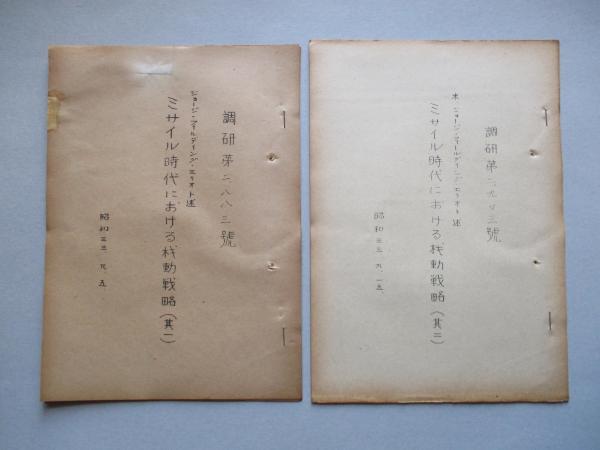 調研第二八八三號
ジョージ・フィールディング・エリオト述
ミサイル時代における機動戦略(其一)
昭和三三、九、五
調研第二九〇三號
米 ジョージ・フィールディング・エリオト述
ミサイル時代における機動戦略(其三)
昭和三三、九、一五、